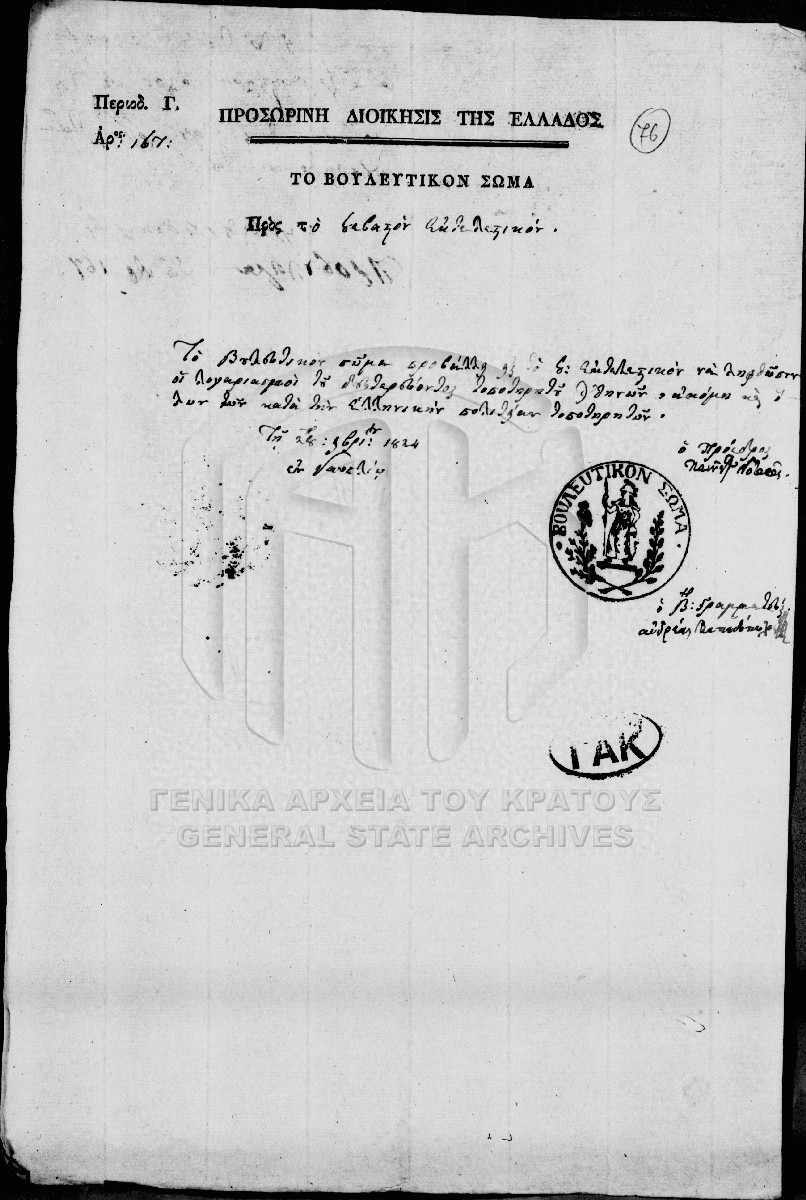 Περιοδ. Γ.
Ἀρ: 167:
ΠΡΟΣΩΡΙΝΗ ΔΙΟΙΚΗΣΙΣ ΤΗΣ ΕΛΛΑΔΟΣ
76
ΤΟ ΒΟΥΛΕΥΤΙΚΟΝ ΣΩΜΑ
Πρὸς τὸ σεβαστὸν Ἐκτελεστικόν.
Τὸ Βουλευτικὸν σῶμα προβάλλει εἰς τὸ Σ: Ἐκτελεστικὸν νὰ ληφθῶσιν
οἱ λογαριασμοὶ τοῦ τοποτηρητοῦ Ἀθηνῶν, ἀκόμη καὶ ὅ-
λων τῶν κατὰ τὴν Ἑλληνικὴν τοποτηρητῶν.
Τῇ 28: 1824
ἐν Ναυπλίῳ
ὁ Πρόεδρος
Πανοῦτζος Νοταρᾶς.
ΒΟΥΛΕΥΤΙΚΟΝ ΣΩΜΑ
ὁ Β: Γραμματεὺς
ἀνδρέας
ΓΑΚ
ΓΕΝΙΚΑ ΑΡΧΕΙΑ ΤΟΥ ΚΡΑΤΟΥΣ
GENERAL STATE ARCHIVES